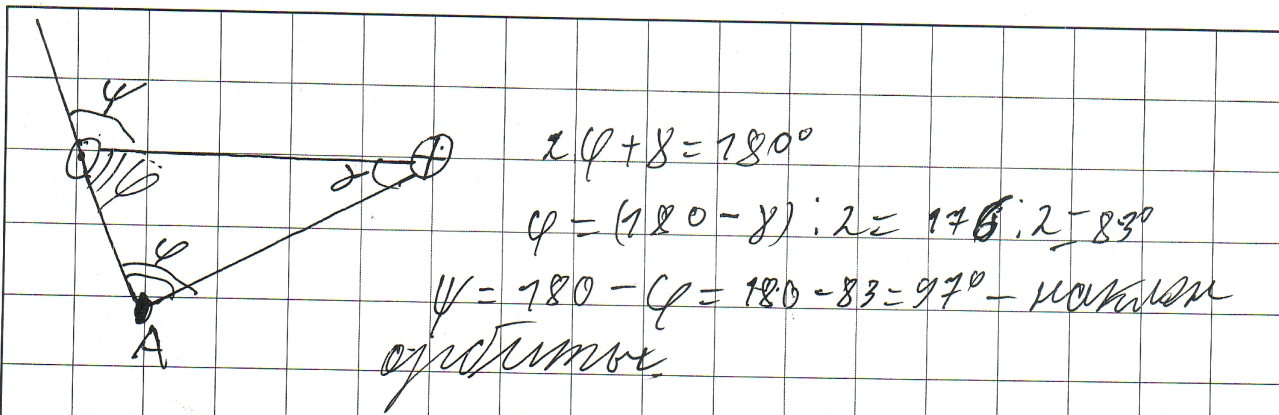 ψ
2φ + 8 = 180°
φ
φ = (180 - 8) : 2 = 176 : 2 = 83°
φ
ψ = 180 - φ = 180 - 83 = 97° - наклон
A
орбиты